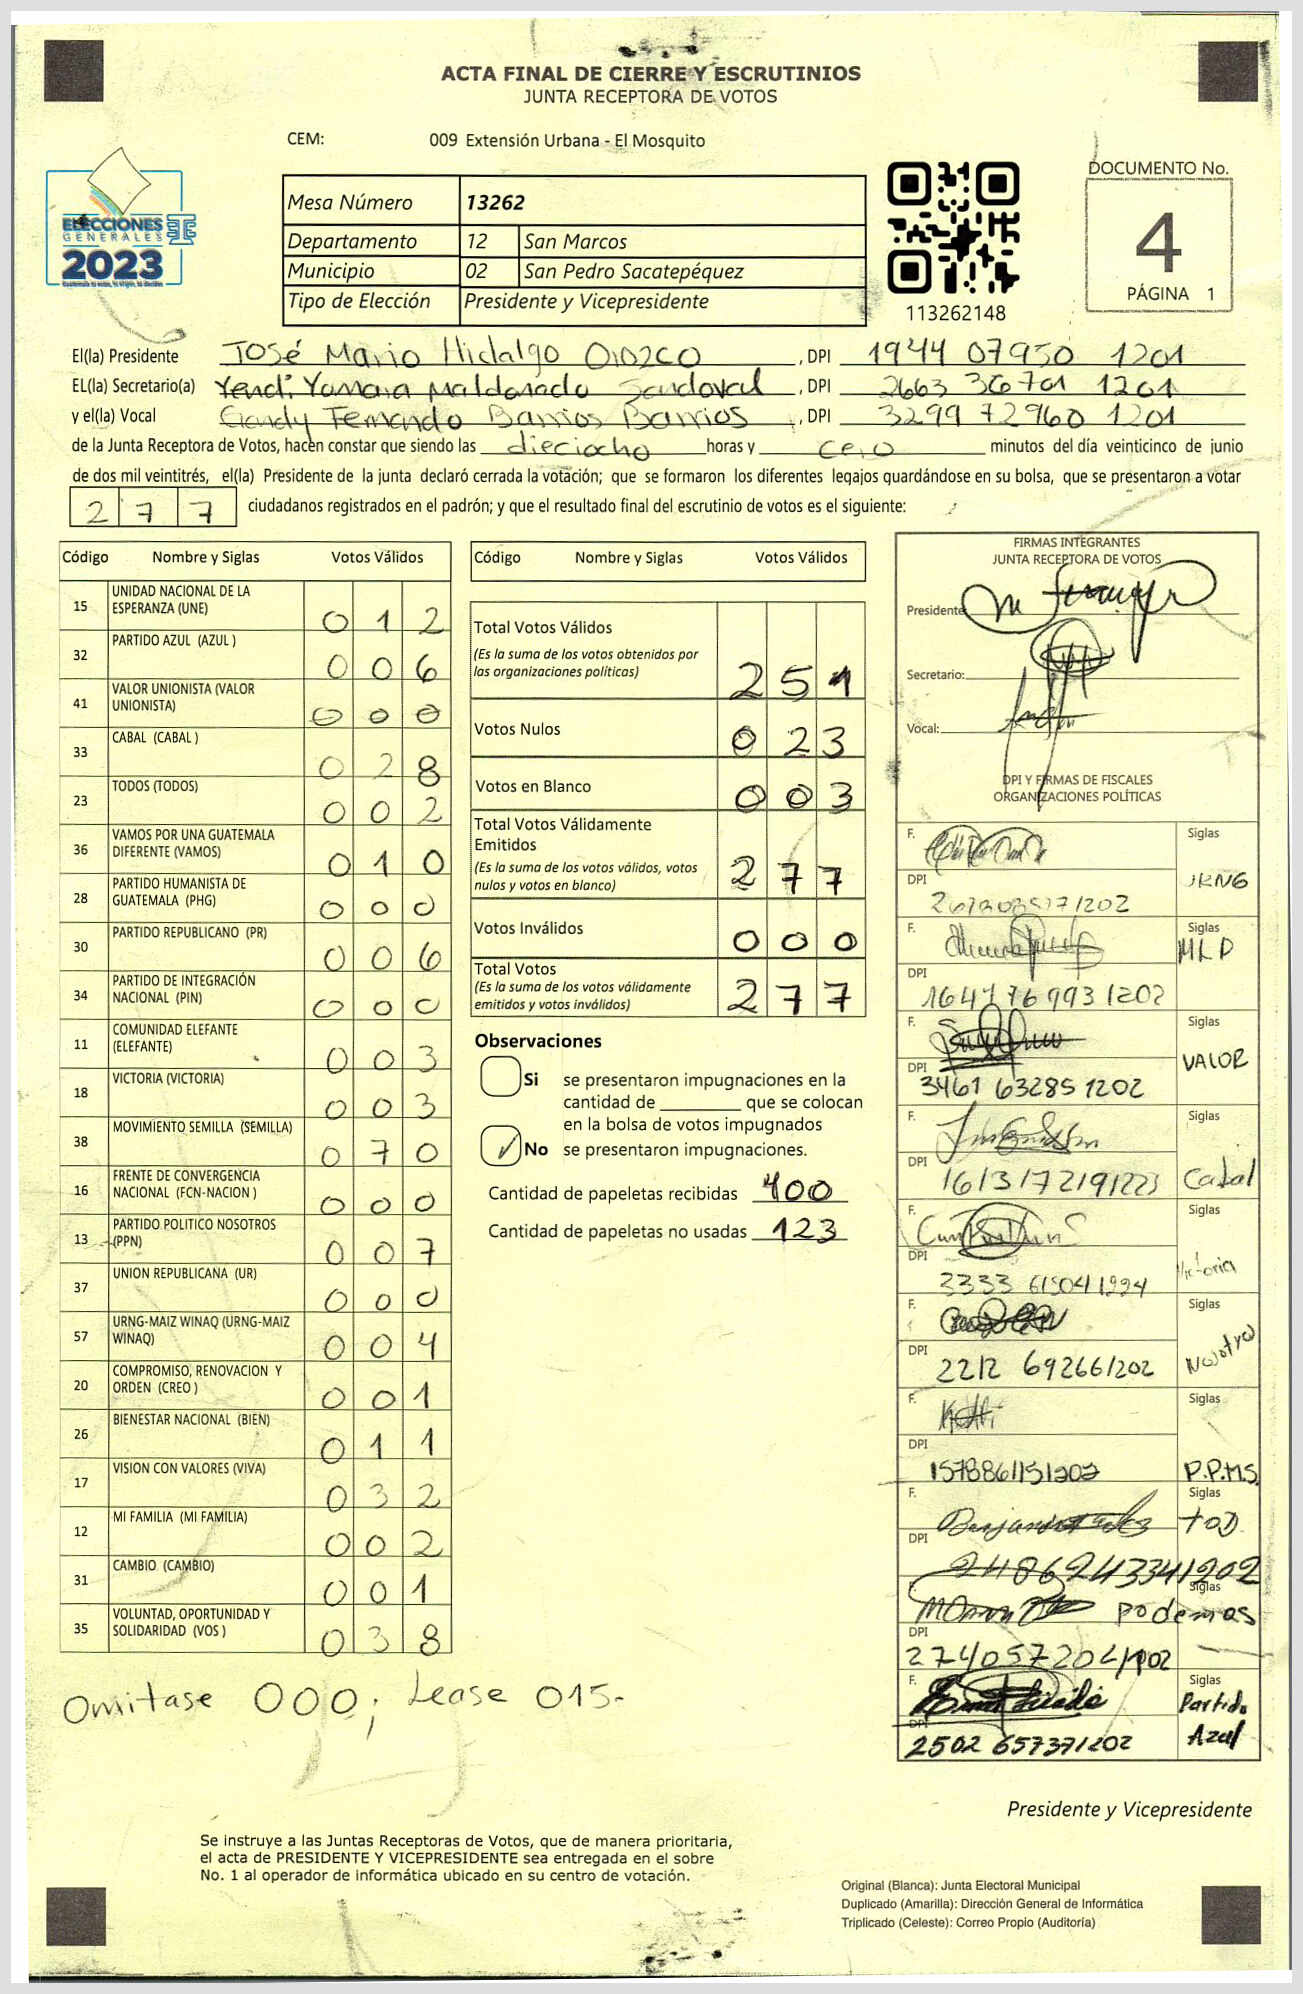 ACTA FINAL DE CIERRE Y ESCRUTINIOS
JUNTA RECEPTORA DE VOTOS
CEM: 009 Extensión Urbana - El Mosquito
ELECCIONES
GENERALES
2023
Mesa Número 13262
Departamento 12 San Marcos
Municipio 02 San Pedro Sacatepéquez
Tipo de Elección Presidente y Vicepresidente
113262148
DOCUMENTO No.
4
PÁGINA 1
El(la) Presidente José Mario Hidalgo Orozco, DPI 1944 07950 1201
EL(la) Secretario(a) Yendi Yamara Maldonado Sandoval, DPI 2663 36701 1201
y el(la) Vocal Fernando Barrios Barrios, DPI 3299 72960 1201
de la Junta Receptora de Votos, hacen constar que siendo las dieciocho horas y cero minutos del día veinticinco de junio
de dos mil veintitrés, el(la) Presidente de la junta declaró cerrada la votación; que se formaron los diferentes legajos guardándose en su bolsa, que se presentaron a votar
277 ciudadanos registrados en el padrón; y que el resultado final del escrutinio de votos es el siguiente:
Código Nombre y Siglas Votos Válidos
15 UNIDAD NACIONAL DE LA ESPERANZA (UNE) 012
32 PARTIDO AZUL (AZUL ) 006
41 VALOR UNIONISTA (VALOR UNIONISTA) 000
33 CABAL (CABAL ) 028
23 TODOS (TODOS) 002
36 VAMOS POR UNA GUATEMALA DIFERENTE (VAMOS) 010
28 PARTIDO HUMANISTA DE GUATEMALA (PHG) 000
30 PARTIDO REPUBLICANO (PR) 006
34 PARTIDO DE INTEGRACIÓN NACIONAL (PIN) 000
11 COMUNIDAD ELEFANTE (ELEFANTE) 003
18 VICTORIA (VICTORIA) 003
38 MOVIMIENTO SEMILLA (SEMILLA) 070
16 FRENTE DE CONVERGENCIA NACIONAL (FCN-NACION ) 000
13 PARTIDO POLITICO NOSOTROS (PPN) 007
37 UNION REPUBLICANA (UR) 000
57 URNG-MAIZ WINAQ (URNG-MAIZ WINAQ) 004
20 COMPROMISO, RENOVACION Y ORDEN (CREO ) 001
26 BIENESTAR NACIONAL (BIEN) 011
17 VISION CON VALORES (VIVA) 032
12 MI FAMILIA (MI FAMILIA) 002
31 CAMBIO (CAMBIO) 001
35 VOLUNTAD, OPORTUNIDAD Y SOLIDARIDAD (VOS ) 038
Omitase 000; Lease 015.-
Código Nombre y Siglas Votos Válidos
Total Votos Válidos 251
(Es la suma de los votos obtenidos por
las organizaciones políticas)
Votos Nulos 023
Votos en Blanco 003
Total Votos Válidamente
Emitidos 277
(Es la suma de los votos válidos, votos
nulos y votos en blanco)
Votos Inválidos 000
Total Votos 277
(Es la suma de los votos válidamente
emitidos y votos inválidos)
Observaciones
Si se presentaron impugnaciones en la
cantidad de ________ que se colocan
en la bolsa de votos impugnados
No se presentaron impugnaciones.
Cantidad de papeletas recibidas 400
Cantidad de papeletas no usadas 123
FIRMAS INTEGRANTES
JUNTA RECEPTORA DE VOTOS
Presidente:
Secretario:
Vocal:
DPI Y FIRMAS DE FISCALES
ORGANIZACIONES POLÍTICAS
F. Siglas
DPI
F. Siglas MLP
DPI 1647 76993 1202
F. Siglas VALOR
DPI 3461 63285 1202
F. Siglas Cabal
DPI
F. Siglas Victoria
DPI
F. Siglas Nosotros
DPI 2212 69266 1202
F. Siglas P.P.M.S.
DPI 1578861151202
F. Siglas TOD
DPI 2486243341202
Siglas Podemos
DPI
F. Siglas Partido Azul
DPI 2502 657371202
Presidente y Vicepresidente
Se instruye a las Juntas Receptoras de Votos, que de manera prioritaria,
el acta de PRESIDENTE Y VICEPRESIDENTE sea entregada en el sobre
No. 1 al operador de informática ubicado en su centro de votación.
Original (Blanca): Junta Electoral Municipal
Duplicado (Amarilla): Dirección General de Informática
Triplicado (Celeste): Correo Propio (Auditoría)